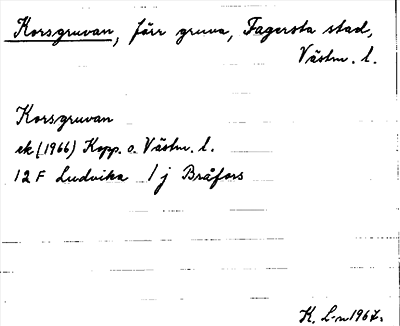 Korsgruvan, förr gruva, Fagersta stad,
Västm. l.
Korsgruvan
ek (1966) Kopp. o. Västm. l.
12 F Ludvika 1 j Bråfors
K. L-n 1967.